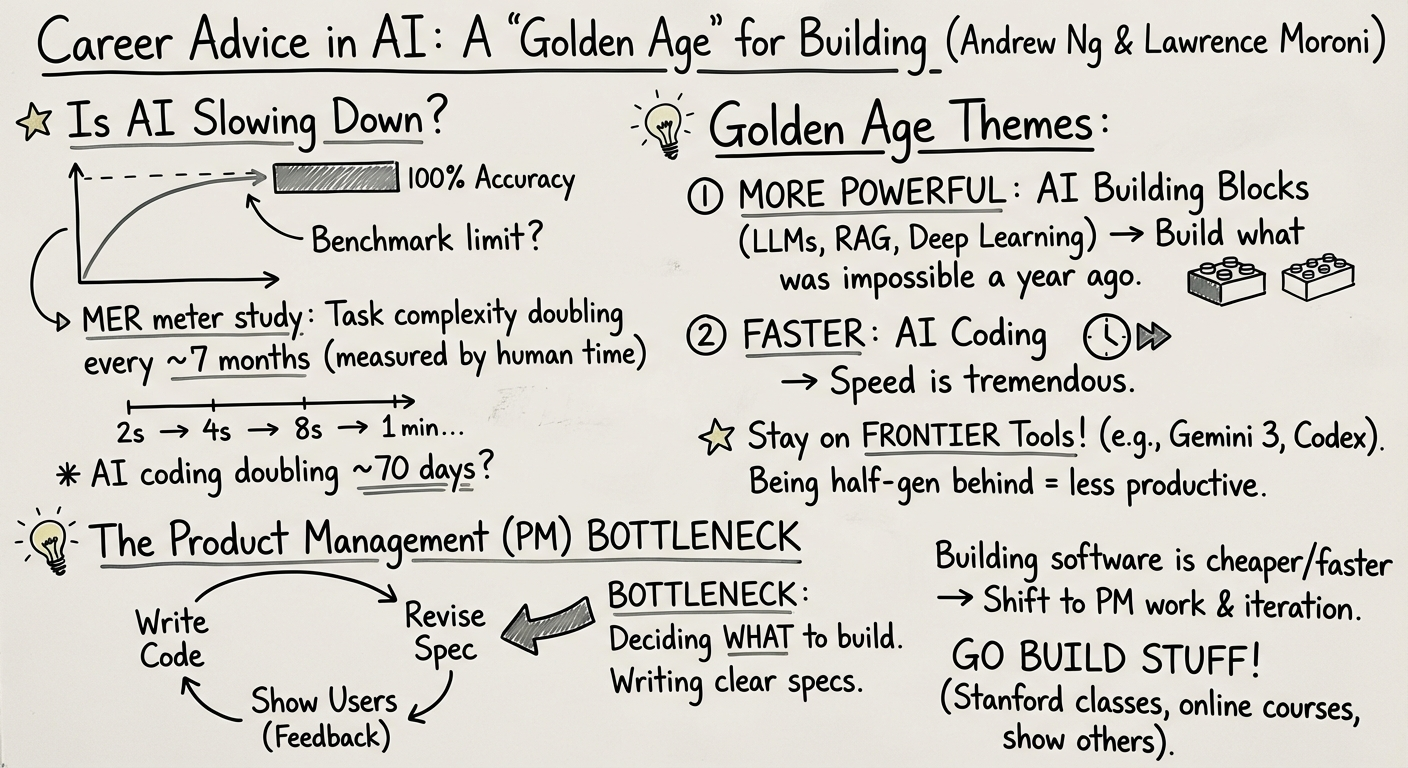 Career Advice in AI: A “Golden Age” for Building (Andrew Ng & Lawrence Moroni)
Is AI Slowing Down?
100% Accuracy
Benchmark limit?
MER meter study: Task complexity doubling
every ~7 months (measured by human time)
2s → 4s → 8s → 1 min...
* AI coding doubling ~70 days?
Golden Age Themes:
① MORE POWERFUL: AI Building Blocks
(LLMs, RAG, Deep Learning) → Build what
was impossible a year ago.
② FASTER: AI Coding
→ Speed is tremendous.
Stay on FRONTIER Tools! (e.g., Gemini 3, Codex).
Being half-gen behind = less productive.
The Product Management (PM) BOTTLENECK
Write
Code
Revise
Spec
Show Users
(Feedback)
BOTTLENECK:
Deciding WHAT to build.
Writing clear specs.
Building software is cheaper/faster
→ Shift to PM work & iteration.
GO BUILD STUFF!
(Stanford classes, online courses,
show others).